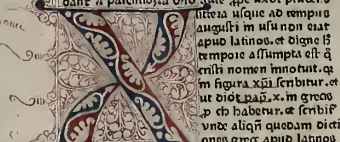 dant a parentibus
littera usque ad tempus
augusti in usu non erat
apud latinos. et digne ił
tempore assumpta est q̄
cristi nomen innotuit. qr̄
in figura xp̄i scribitur. et
ut dicit pap̄. x. in grecis
ꝓ ch habetur. et scribit̾
vnde aliqn̄ quedam dicti
ones grece apud latinos